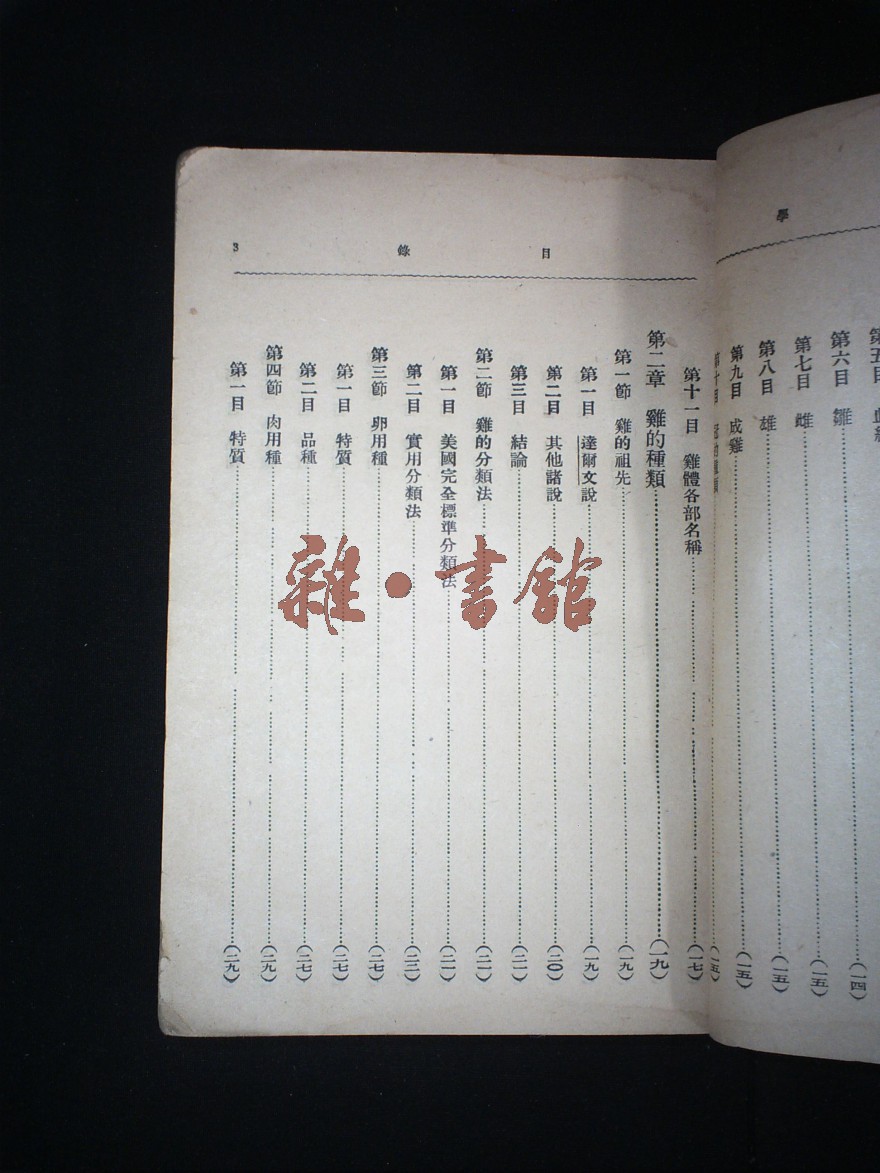 學
第六目　雛……(一四)
第七目　雌……(一五)
第八目　雄……(一五)
第九目　成雞……(一五)
目　錄　3
第十一目　雞體各部名稱……(一七)
第二章　雞的種類……(一九)
第一節　雞的祖先……(一九)
第一目　達爾文說……(一九)
第二目　其他諸說……(二〇)
第三目　結論……(二一)
第二節　雞的分類法……(二一)
第一目　美國完全標準分類法……(二一)
第二目　實用分類法……(二二)
第三節　卵用種……(二七)
第一目　特質……(二七)
第二目　品種……(二七)
第四節　肉用種……(二九)
第一目　特質……(二九)
雜·書館